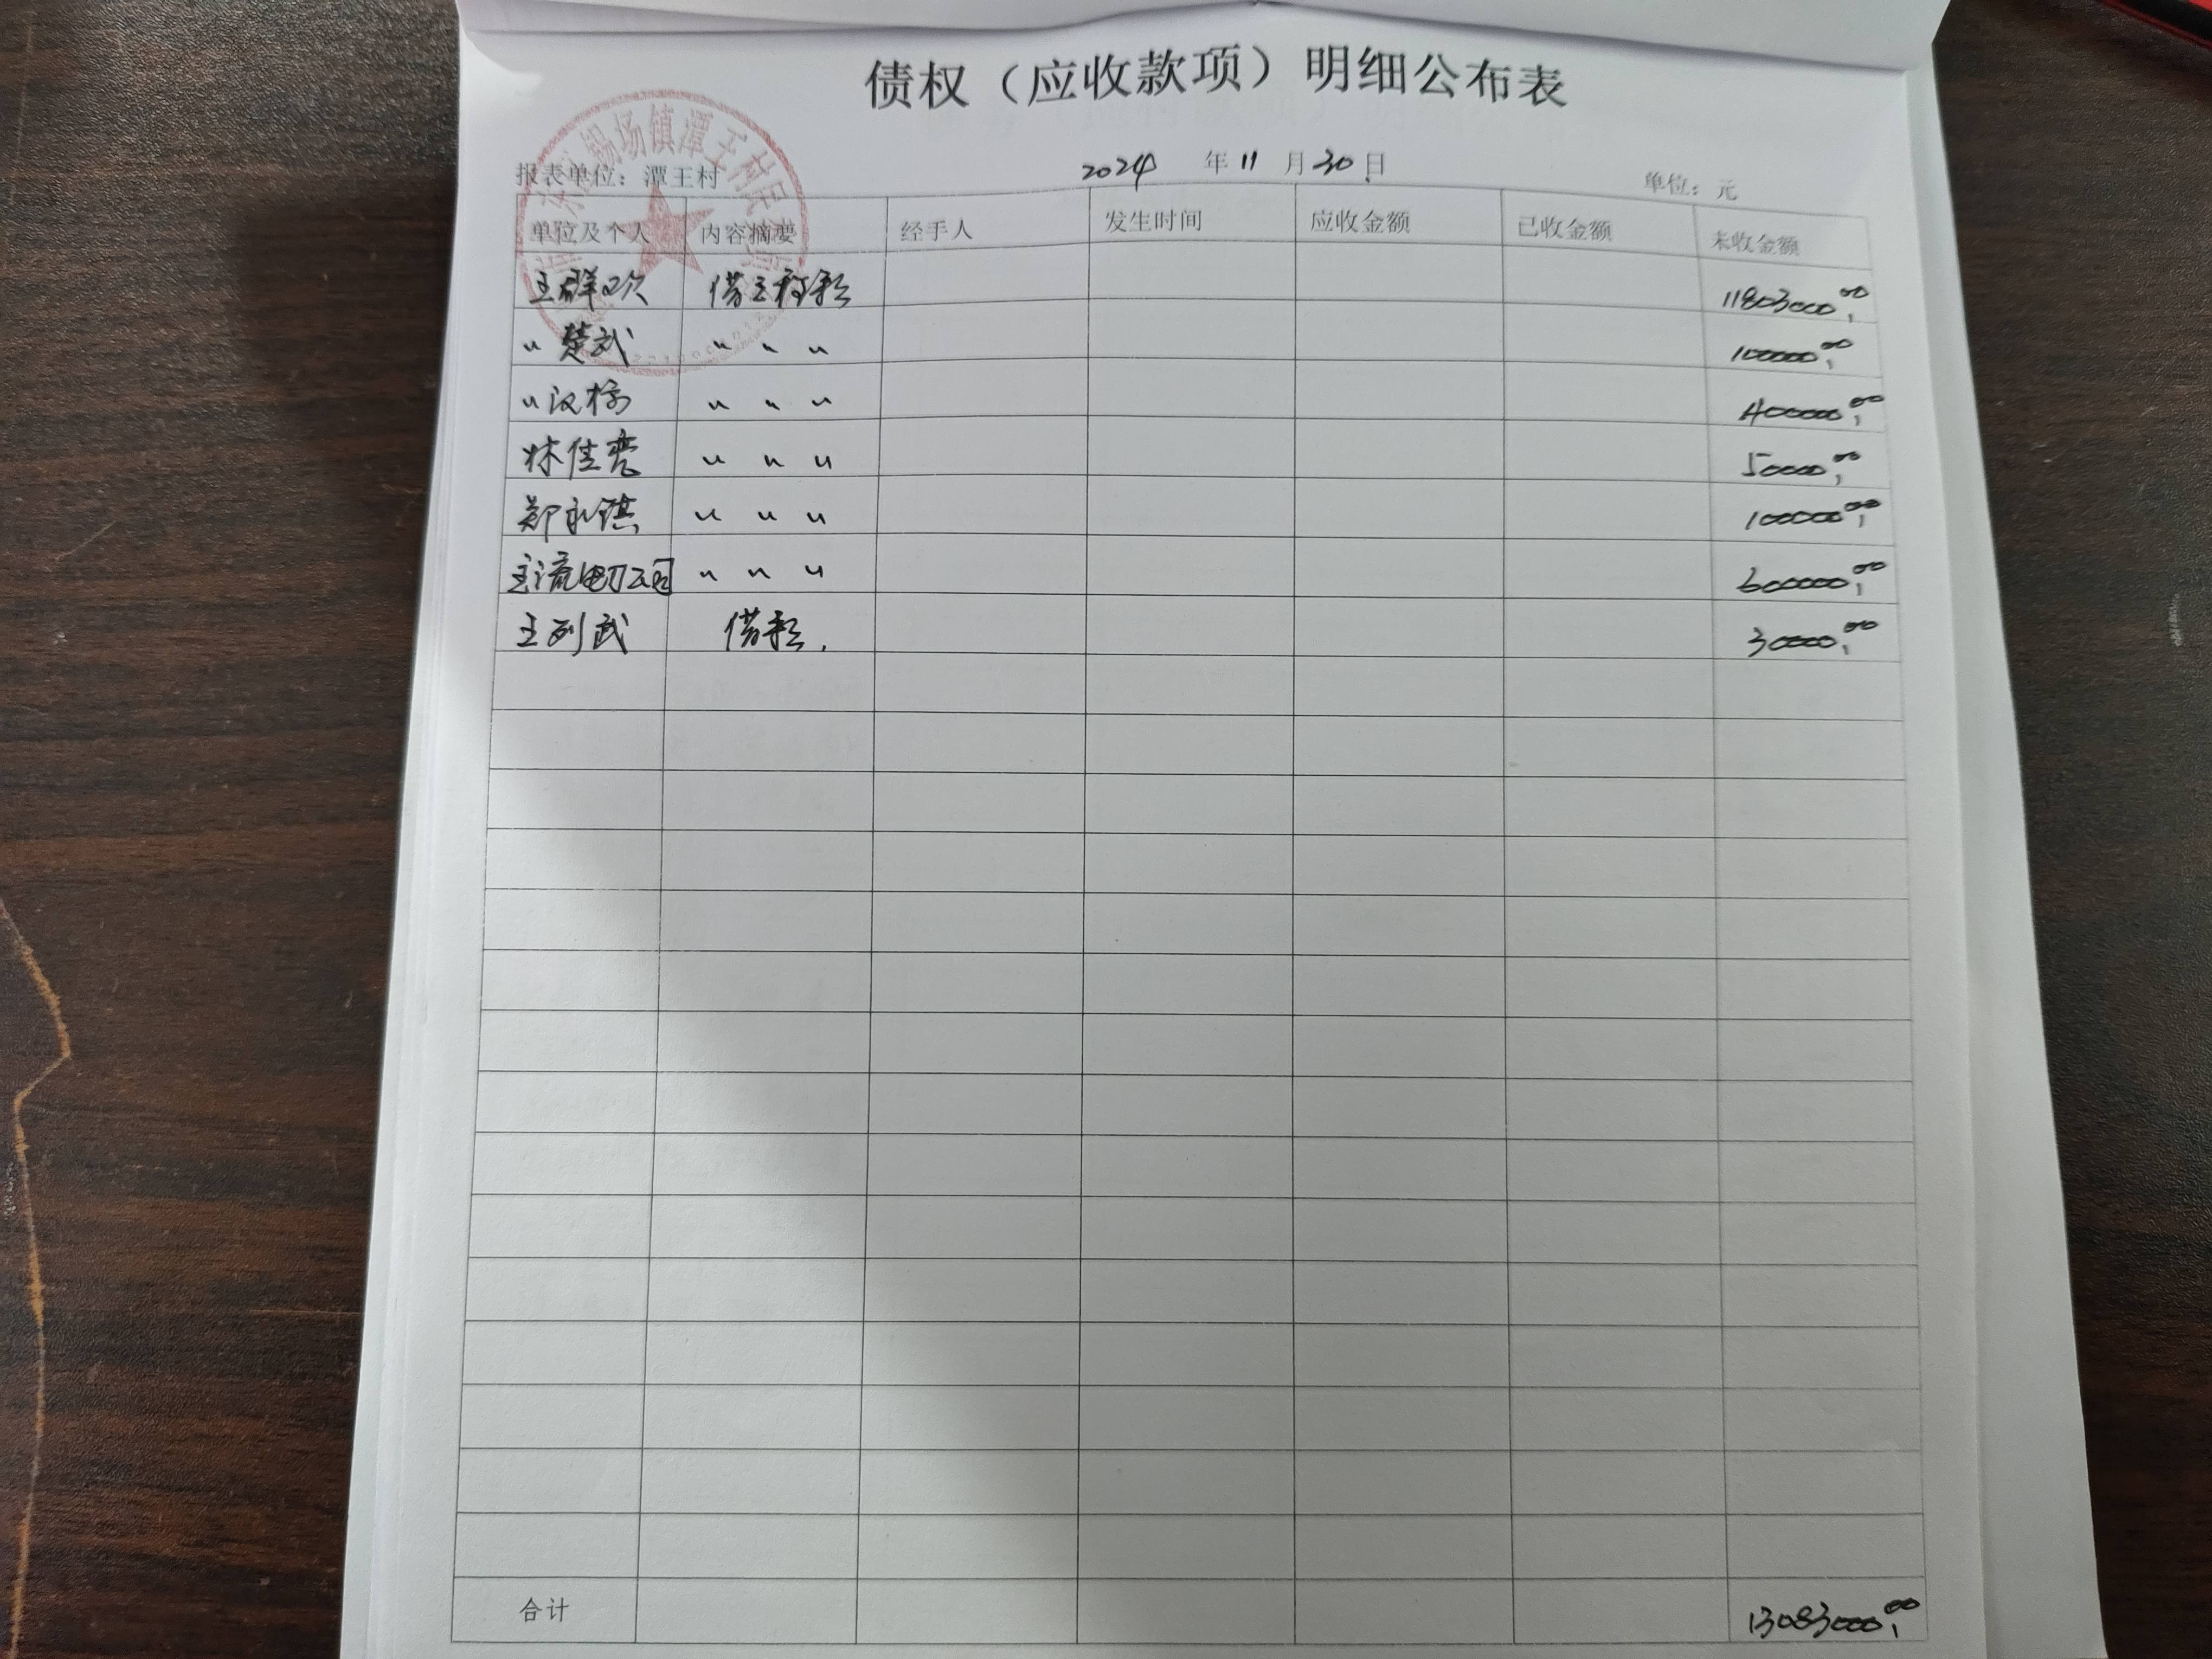 债权（应收款项）明细公布表
锡场镇潭王村民
报表单位：潭王村 2024 年 11 月 30 日 单位：元
单位及个人 内容摘要 经手人 发生时间 应收金额 已收金额 未收金额
王群 借 款 11803000.00
〃楚武 〃 〃 〃 100000.00
〃汉 〃 〃 〃 400000.00
林佳亮 〃 〃 〃 50000.00
郑永 〃 〃 〃 100000.00
流电力公司 〃 〃 〃 600000.00
王列武 借款. 30000.00
合计 13083000.00